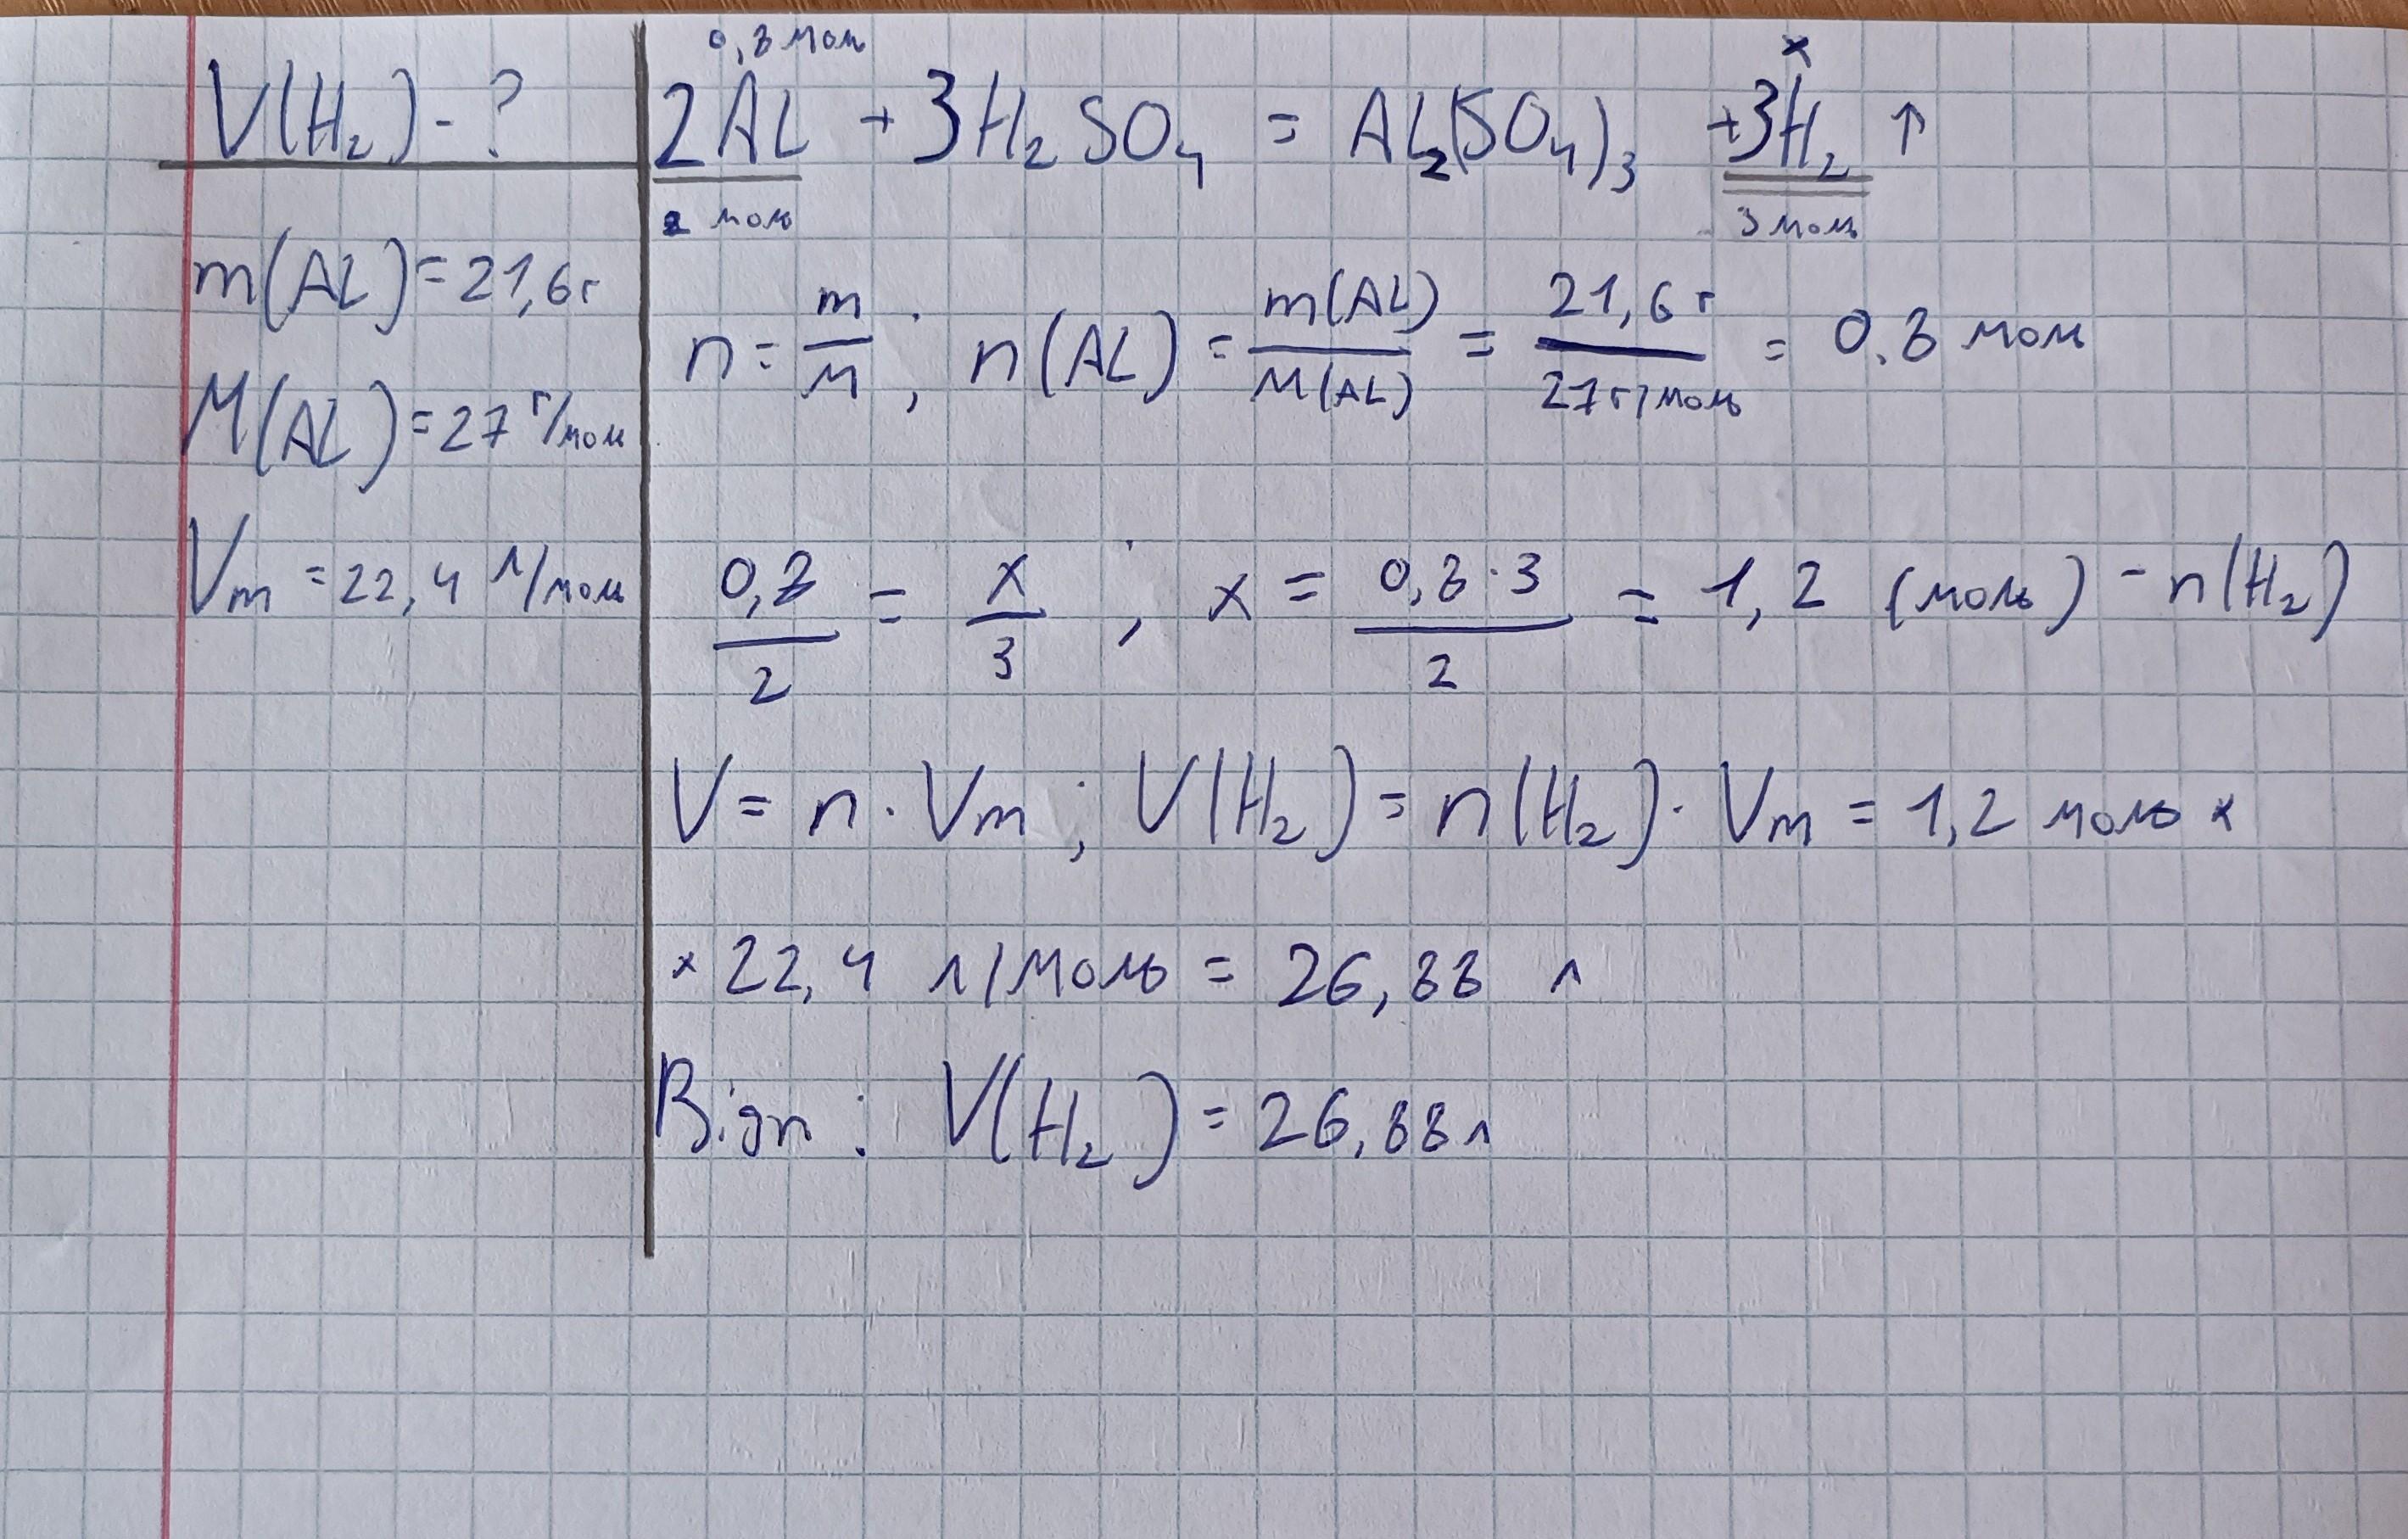 V(H₂) - ?
m(AL) = 21,6 г
M(AL) = 27 г/моль
Vm = 22,4 л/моль
0,8 моль x
2AL + 3H₂SO₄ = AL₂(SO₄)₃ + 3H₂ ↑
2 моль 3 моль
n = m/M ; n(AL) = m(AL)/M(AL) = 21,6 г/27 г/моль = 0,8 моль
0,8/2 = x/3 ; x = 0,8·3/2 = 1,2 (моль) - n(H₂)
V = n · Vm ; V(H₂) = n(H₂) · Vm = 1,2 моль ×
× 22,4 л/моль = 26,88 л
Відп : V(H₂) = 26,88 л